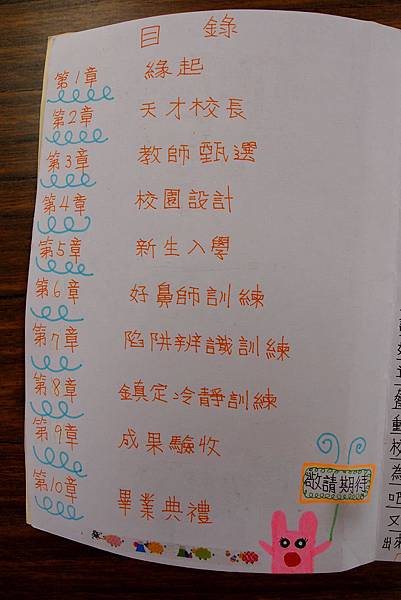 目錄
第1章 緣起
第2章 天才校長
第3章 教師甄選
第4章 校園設計
第5章 新生入學
第6章 好鼻師訓練
第7章 陷阱辨識訓練
第8章 鎮定冷靜訓練
第9章 成果驗收
第10章 畢業典禮
敬請期待